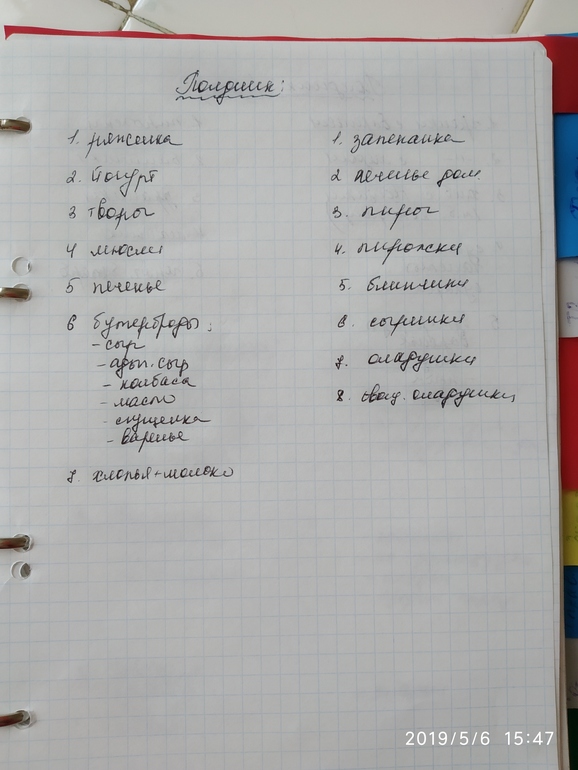 Полдник:
1. ряженка
2. йогурт
3 творог
4 мюсли
5 печенье
6 бутерброды:
- сыр
- адыг. сыр
- колбаса
- масло
- сгущенка
- варенье
7. хлопья + молоко
1. запеканка
2 печенье дом.
3. пирог
4. пирожки
5. блинчики
6. сырники
7. оладушки
8. овощ. оладушки
2019/5/6 15:47